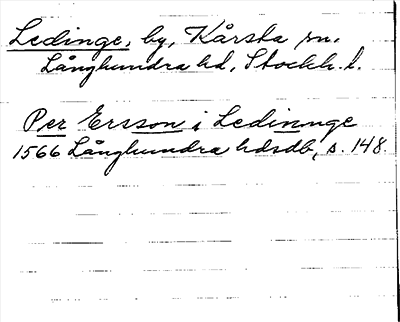 Ledinge, by, Kårsta sn.
Långhundra hd, Stockh. l.
Per Ersson i Ledinnge
1566 Långhundra hdsdb, s. 148.